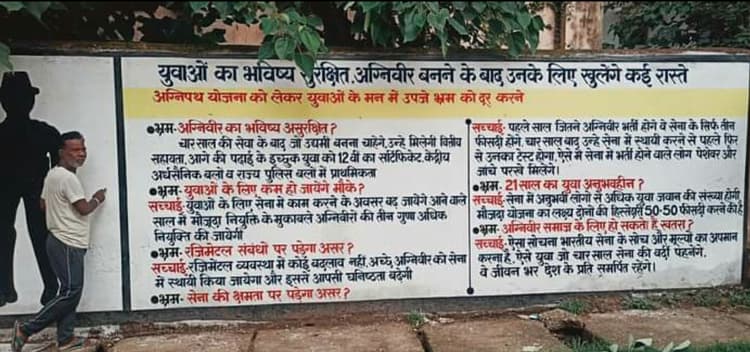 युवाओं का भविष्य सुरक्षित, अग्निवीर बनने के बाद उनके लिए खुलेंगे कई रास्ते
अग्निपथ योजना को लेकर युवाओं के मन में उपजे भ्रम को दूर करने
●भ्रम-अग्निवीर का भविष्य असुरक्षित?
चार साल की सेवा के बाद जो उद्यमी बनना चाहेंगे, उन्हें मिलेगी वित्तीय
सहायता, आगे की पढ़ाई के इच्छुक युवा को 12वीं का सर्टिफिकेट, केंद्रीय
अर्धसैनिक बलों व राज्य पुलिस बलों में प्राथमिकता
●भ्रम- युवाओं के लिए कम हो जायेंगे मौके?
सच्चाई- युवाओं के लिए सेना में काम करने के अवसर बढ़ जायेंगे आने वाले
साल में मौजूदा नियुक्ति के मुकाबले अग्निवीरों की तीन गुणा अधिक
नियुक्ति की जायेगी
●भ्रम- रजिमेंटल संबंधों पर पड़ेगा असर?
सच्चाई- रजिमेंटल व्यवस्था में कोई बदलाव नहीं, अच्छे अग्निवीर को सेना
में स्थायी किया जायेगा और इससे आपसी घनिष्ठता बढ़ेगी
●भ्रम- सेना की क्षमता पर पड़ेगा असर?
सच्चाई- पहले साल जितने अग्निवीर भर्ती होंगे वे सेना के सिर्फ तीन
फीसदी होंगे, चार साल बाद उन्हें सेना में स्थायी करने से पहले फिर
से उनका टेस्ट होगा, ऐसे में सेना में भर्ती होने वाले लोग पेशेवर और
जांचे परखे मिलेंगे।
●भ्रम- 21 साल का युवा अनुभवहीन?
सच्चाई- सेना में अनुभवी लोगों से अधिक युवा जवान की संख्या होगी
मौजूदा योजना का लक्ष्य दोनों की हिस्सेदारी 50-50 फीसदी करने की है
●भ्रम- अग्निवीर समाज के लिए हो सकता है खतरा?
सच्चाई- ऐसा सोचना भारतीय सेना के सोच और मूल्यों का अपमान
करना है, ऐसे युवा जो चार साल सेना की वर्दी पहनेंगे,
वे जीवन भर देश के प्रति समर्पित रहेंगे।